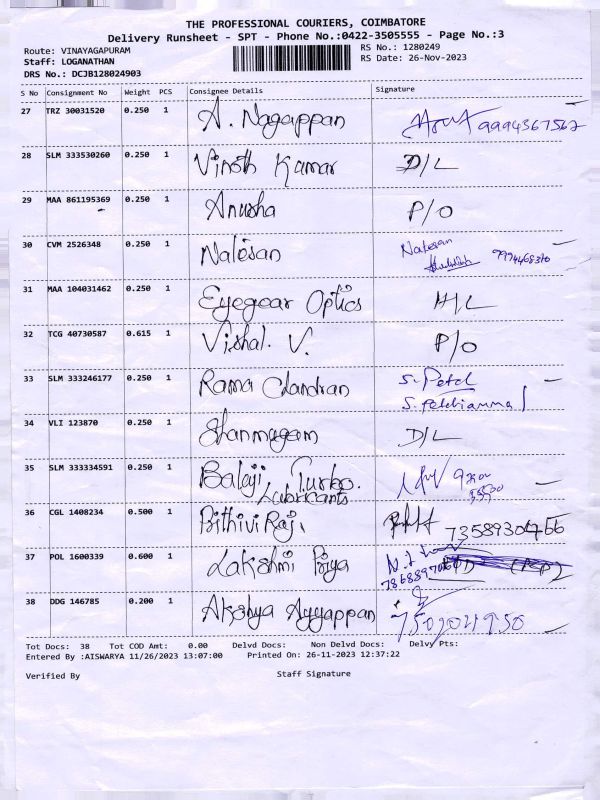 THE PROFESSIONAL COURIERS, COIMBATORE
Delivery Runsheet - SPT - Phone No.:0422-3505555 - Page No.:3
Route: VINAYAGAPURAM
RS No.: 1280249
Staff: LOGANATHAN
RS Date: 26-Nov-2023
DRS No.: DCJB128024903
S No Consignment No Weight PCS Consignee Details Signature
27 TRZ 30031520 0.250 1 A. Nagappan 9994367562
28 SLM 333530260 0.250 1 Vinoth Kumar D/L
29 MAA 861195369 0.250 1 Anusha P/O
30 CVM 2526348 0.250 1 Natesan Natesan
31 MAA 104031462 0.250 1 Eyegear Optics H/L
32 TCG 40730587 0.615 1 Vishal. V. P/O
33 SLM 333246177 0.250 1 Rama Chandran S. Petch
S. Petchiammal
34 VLI 123870 0.250 1 Shanmugam D/L
35 SLM 333334591 0.250 1 Balaji Turbo.
Lubricants
36 CGL 1408234 0.500 1 Prithivi Raj. 7358930466
37 POL 1600339 0.600 1 Lakshmi Priya
38 DDG 146785 0.200 1 Akshya Ayyappan
Tot Docs: 38 Tot COD Amt: 0.00 Delvd Docs: Non Delvd Docs: Delvy Pts:
Entered By :AISWARYA 11/26/2023 13:07:00 Printed On: 26-11-2023 12:37:22
Verified By Staff Signature